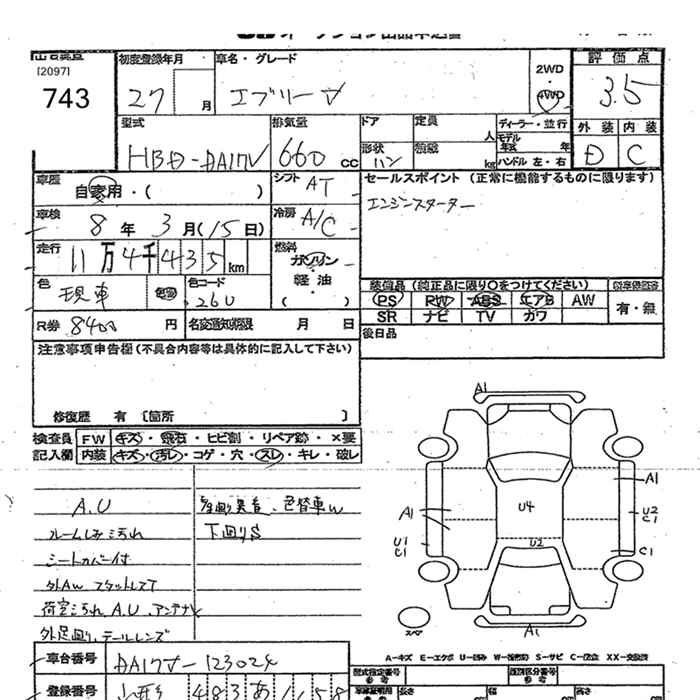 [2097]
743
初度登録年月
27 月
車名・グレード
エブリー V
2WD
・
4WD
評価点
3.5
型式
HBD-DA17V
排気量
660 cc
ドア
形状
バン
定員
人
積載
kg
ディーラー・並行
モデル
年式 年
ハンドル 左・右
外装 内装
D C
車歴
自家用・( )
シフト
AT
車検
8 年 3 月(15日)
冷房
A/C
走行
11万4千435km
燃料
ガソリン
軽油
( )
色
現車
色替
色コード
26U
R券 8400 円
名変通知期限 月 日
セールスポイント(正常に機能するものに限ります)
エンジンスターター
装備品(純正品に限り○をつけてください)
PS PW ABS エアB AW
SR ナビ TV カワ
有・無
後日品
注意事項申告欄(不具合内容等は具体的に記入して下さい)
修復歴 有〔箇所 〕
検査員
記入欄
FW キズ・飛石・ヒビ割・リペア跡・×要
内装 キズ・汚レ・コゲ・穴・スレ・キレ・破レ
A.U
ルームしみ汚れ
シートカバー付
外AW スタットレスT
荷室汚れ、A.U、アンテナ
外足廻り、テールレンズ
色替車w
下廻りS
A1
A1
A1
U4
U2
C1
U1
C1
U2
C1
A1
スペア
A-キズ E-エクボ U-凹み W-波(板金) S-サビ C-腐食 XX-交換済
車台番号 DA17V-123024
登録番号 山形 483 あ 1158
型式指定番号
類別区分番号
長さ
幅
高さ